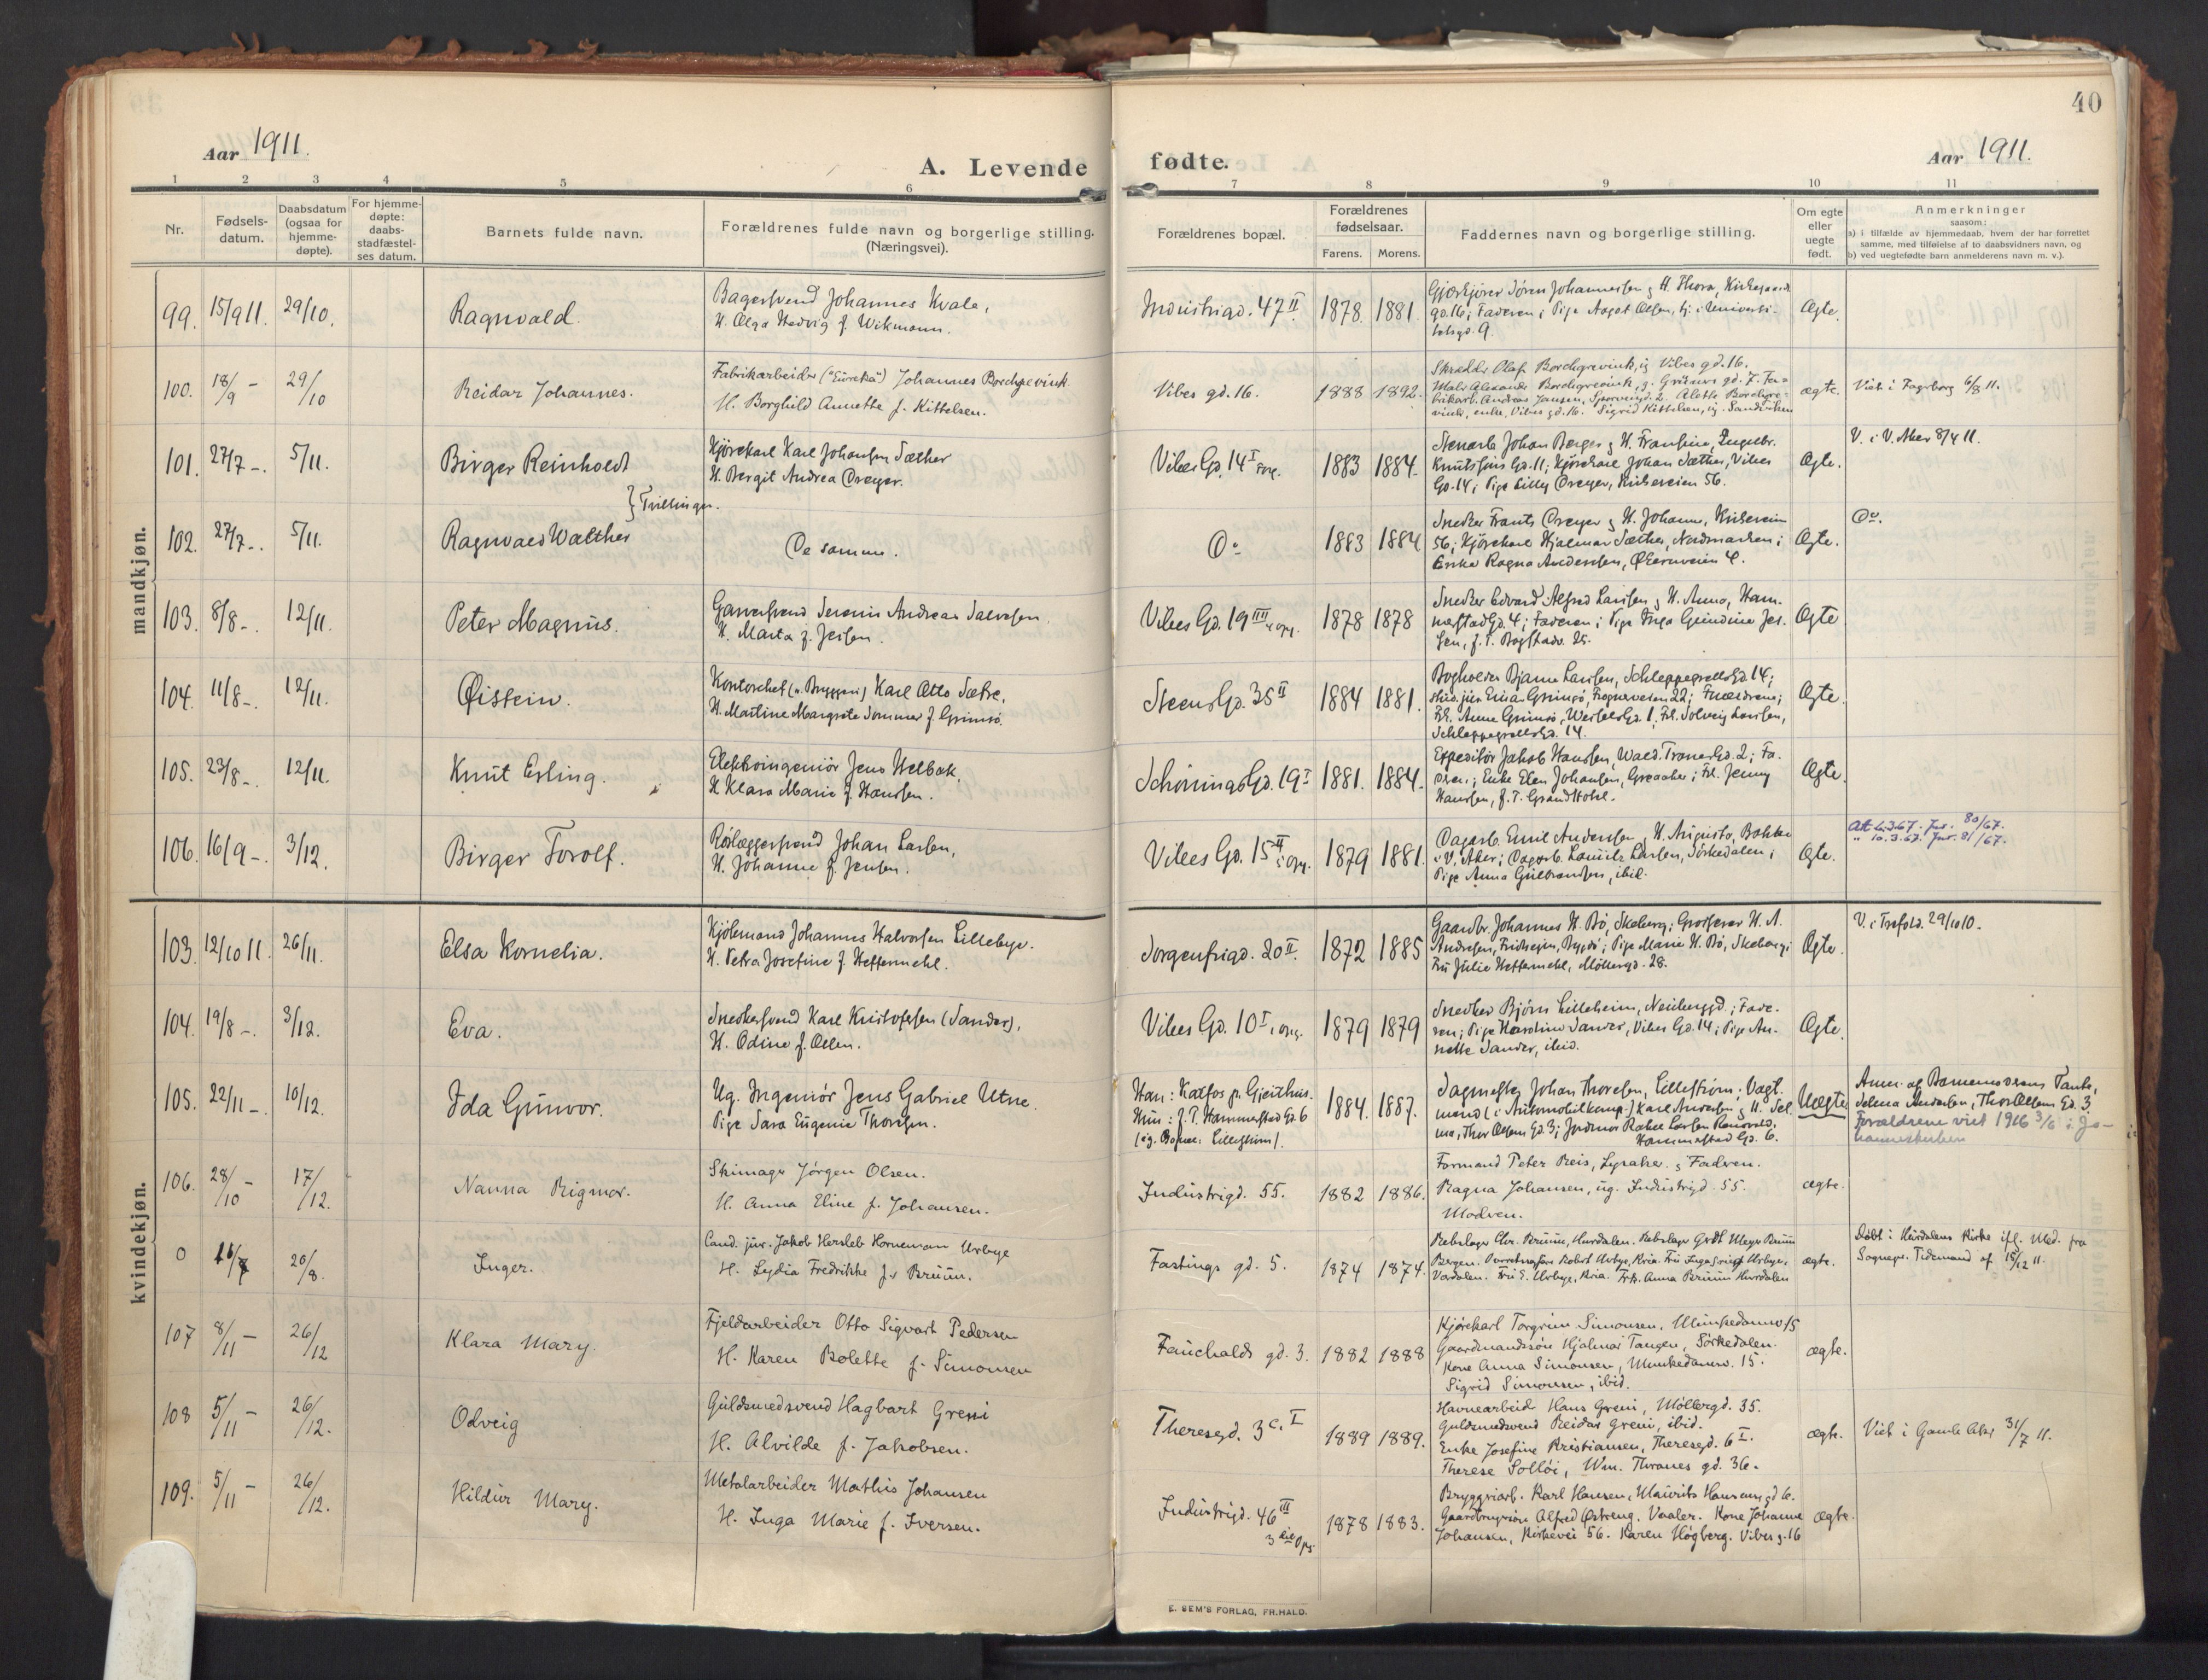 40
Aar 1911.
A. Levende fødte.
Aar 1911.
1 2 3 4 5 6 7 8 9 10 11
Nr.
Fødsels-
datum.
Daabsdatum
(ogsaa for
hjemme-
døpte).
For hjemme-
døpte:
daabs-
stadfæstel-
ses datum.
Barnets fulde navn.
Forældrenes fulde navn og borgerlige stilling.
(Næringsvei).
Forældrenes bopæl.
Forældrenes
fødselsaar.
Farens. Morens.
Faddernes navn og borgerlige stilling.
Om egte
eller
uegte
født.
Anmerkninger
saasom:
a) i tilfælde av hjemmedaab, hvem der har forrettet
samme, med tilføielse af to daabsvidners navn, og
b) ved uegtefødte barn anmelderens navn m. v.).
mandkjøn.
99. 15/9 11. 29/10. Ragnvald.
Bagersvend Johannes Kvale,
H. Olga Hedvig f. Wikmann.
Industrigd. 47 II 1878 1881.
Gjørtjører Søren Johannessen & H. Thora, Kirkegaards
gd. 16; Faderen; Pige Aagot Olsen, tj. i Universi-
tetsgd. 9.
Ægte.
100. 18/9 – 29/10 Reidar Johannes.
Fabrikarbeider ("Eureka") Johannes Borchgrevink
H. Borghild Annette f. Kittelsen.
Vibes gd. 16. 1888 1892.
Skrædder Olaf Borchgrevink, ig Vibes gd. 16.
Maler Alexander Borchgrevink, g. Grüners gd. 7. Fa-
brikarb. Andreas Jansen, Sporveisgd. 2. Alette Borchgre-
vink, enke, Vibes gd. 16. Sigrid Kittelsen, ig. Sandviken
ægte.
Viet i Fagerborg 6/8 11.
101. 27/7 –. 5/11. Birger Reinholdt
Kjørekarl Karl Johansen Sæther
H. Bergit Andrea Dreyer.
Vibes Gd. 14 I opg. 1883 1884.
Stenarb. Johan Berger & H. Fransine, Engelbr.
Knutsens Gd. 11; Kjørekarl Johan Sæther, Vibes
Gd. 14; Pige Lilly Dreyer, Kirkeveien 56.
Ægte.
V. i V. Aker 8/4 11.
} Tvillinger.
102. 27/7 –. 5/11. Ragnvald Walther
De samme.
Do 1883 1884
Snedker Frants Dreyer & H. Johanne, Kirkeveien
56; Kjørekarl Hjalmar Sæther, Nordmarken;
Enke Ragna Andersen, Økernveien 4.
Ægte.
Do.
103. 8/8 –. 12/11. Peter Magnus.
Garversvend Severin Andreas Salvesen.
H. Marta f. Jessen.
Vibes Gd. 19 III i opg. 1878 1878
Snedker Edvard Alfred Larsen & H. Anna, Ham-
merstad Gd. 4; Faderen; Pige Inga Gundine Jes-
sen, f. T. Bogstadv. 25.
Ægte
104. 11/8 –. 12/11. Øistein.
Kontorchef (v. Bryggeri) Karl Otto Sætre,
H. Martine Margrete Sommer f. Grimsø.
Steens Gd. 35 II 1884 1881.
Bogholder Bjarne Larssen, Schleppegrells Gd. 14;
stud. jur. Einar Grimsø, Frognerveien 22; Forældrene;
Frk. Anna Grimsø, Wessels Gd. 1, Frk. Solveig Larssen,
Schleppegrells Gd. 14.
Ægte.
105. 23/8 –. 12/11. Knut Erling.
Elektroingeniør Jens Welbak,
H. Klara Marie f. Hanssen.
Schønings Gd. 19 I 1881. 1884.
Expeditør Jakob Hanssen, Wald. Thranes Gd. 2; Fa-
deren; Enke Elen Johansen, Greaaker; Frk. Jenny
Hanssen, f. T. Grand Hotel.
Ægte.
106. 16/9 –. 3/12. Birger Torolf.
Rørlæggersvend Johan Larsen,
H. Johanne f. Jensen.
Vibes Gd. 15 II i opg. 1879 1881.
Dagarb. Emil Andersen, H. Augusta, Bakken
i V. Aker; Dagarb. Lauritz Larsen, Sørkedalen;
Pige Anna Gulbrandsen, ibid.
Ægte.
Att 6.3.67. Jnr. 80/67.
" 10.3.67. Jnr. 81/67.
kvindekjøn.
103. 12/10 11. 26/11. Elsa Kornelia.
Kjølemand Johannes Halvorsen Lillebye.
H. Petra Josefine f. Heftermehl.
Sorgenfrigd. 20 II. 1872 1885
Gaardbr. Johannes H. Bø, Skeberg; Grosserer H. A.
Andresen, Fridheim, Bygdø; Pige Marie H. Bø, Skeberg;
Fru Julie Heftermehl, Møllergd. 28.
Ægte.
V. i Trefold. 29/10 10.
104. 19/8 –. 3/12. Eva.
Snedkersvend Karl Kristofersen (Sander),
H. Odine f. Olsen.
Vibes Gd. 10 I i opg. 1879 1879
Snedker Bjørn Lilleheim, Neuberggd.; Fade-
ren; Pige Karoline Sander, Vibes Gd. 14; Pige An-
nette Sander, ibid.
Ægte.
105. 22/11 –. 10/12. Ida Gunvor.
Ug. Ingeniør Jens Gabriel Utne.
Pige Sara Eugenie Thoresen.
Han: Katfos pr. Gjeithus.
Hun: f. T. Hammerstad Gd. 6
(eg. Bopæl: Lillestrøm).
1884. 1887.
Sagmester Johan Thoresen, Lillestrøm; Vagt-
mand (i Automobilkomp.) Karl Andersen & H. Sel-
ma, Thor Olsens Gd. 3; Jordmor Rakel Larsen Rensvold,
Hammerstad Gd. 6.
Uægte
Anm. af Barnemoderens Tante,
Selma Andersen, Thor Olsens Gd. 3.
Forældrene viet 1916 3/6 i Jo-
hanneskirken
106. 28/10 – 17/12. Nanna Rigmor.
Skimager Jørgen Olsen.
H. Anna Eline f. Johansen.
Industrigd. 55. 1882 1886.
Formand Peter Reis, Lysaker. ; Faderen.
Ragna Johansen, ug. Industrigd. 55.
Modren.
ægte.
0 16/7 20/8. Inger.
Cand. jur. Jakob Hersleb Horneman Urbye
H. Lydia Fredrikke f. Bruun.
Fastings gd. 5. 1874 1874.
Rebslager Chr. Bruun, Hurdalen. Rebslager Gerdt Meyer Bruun
Bergen. Overretssagfører Robert Urbye, Kria. Fru Inga Urbye,
Værdalen. Fru E. Urbye, Kria. Frk. Anna Bruun Hurdalen
ægte.
Døbt i Hurdalens Kirke ifl. Med. fra
Sognepr. Tidemand af 15/12 11.
107 8/11 – 26/12 Klara Mary.
Fjeldarbeider Otto Sigvart Pedersen
H. Karen Bolette f. Simonsen
Fauchalds gd. 3. 1882 1888
Kjørekarl Torgrim Simonsen, Munkedamsv 15
Gaardmandssøn Hjalmar Tangen, Sørkedalen.
Kone Anna Simonsen, Munkedamsv. 15.
Sigrid Simonsen, ibid.
ægte.
108 5/11 – 26/12. Odveig
Guldsmedsvend Hagbart Greni
H. Alvilde f. Jakobsen.
Theresegd. 3 c. I 1889 1889.
Havnearbeid Hans Greni, Møllergd. 35.
Guldsmedsvend Reidar Greni, ibid.
Enke Josefine Kristiansen, Theresegd. 6 I.
Therese Solløi, Wm. Thranes gd. 36.
ægte.
Viet i Gamle Aker 31/7 11.
109. 5/11 – 26/12. Hildur Mary.
Metalarbeider Mathis Johansen
H. Inga Marie f. Iversen.
Industrigd. 46 III
3 die Opg.
1878 1883.
Bryggeriarb. Karl Hansen, Mauritz Hansens gd 6.
Gaardbrugersøn Alfred Østreng, Vaaler. Kone Johanne
Johansen, Kirkevei 56. Karen Høgberg. Vibes g. 16
ægte.
E. SEM'S FORLAG, FR.HALD.